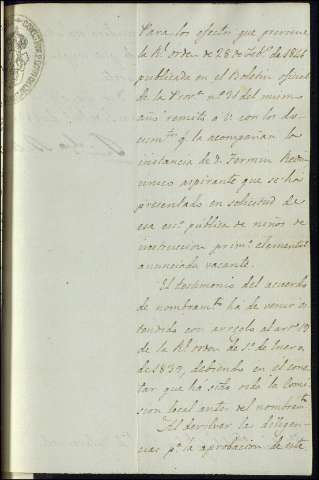 Para los efectos que previene
la Rl. orden de 28 de Febo. de 1846
publicada en el Boletin oficial
de la Prova. nº 31 del mismo
año remito a V. con los do-
cumtos. q. la acompañan la
instancia de D. Fermin
unico aspirante que se há
presentado en solicitud de
esa esca. publica de niños de
instruccion prima. elemental
anunciada vacante.
El testimonio del acuerdo
de nombramto. há de venir es-
tendido con arreglo al arto.
de la Rl. orden de 1º de Enero
de 1839, debiendo en el cons-
tar que há sido oida la Comi-
sion local antes del nombramto.
Al devolver las diligen-
cias pa. la aprobacion de este